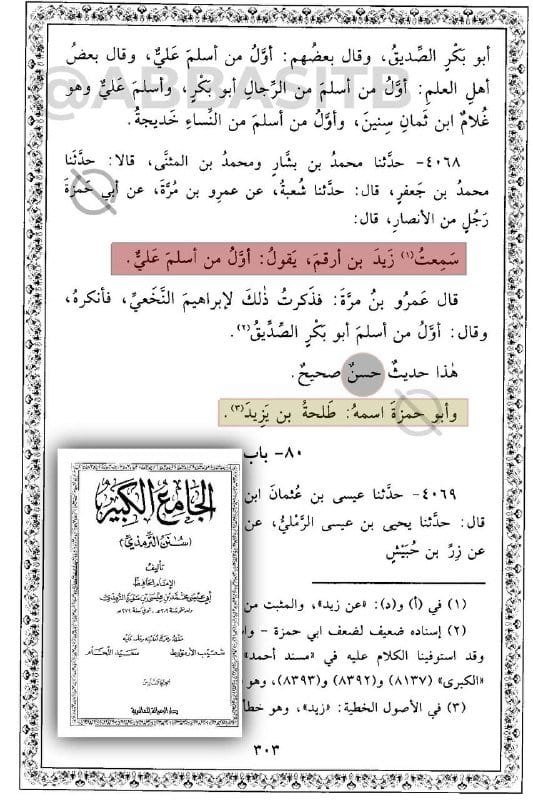 أبو بَكْرٍ الصِّديقُ، وقال بعضُهم: أوَّلُ من أسلمَ عَليٌّ، وقال بعضُ
أهلِ العلمِ: أوَّلُ من أسلمَ من الرِّجالِ أبو بَكْرٍ، وأسلمَ عَليٌّ وهو
غُلامٌ ابن ثَمانِ سِنينَ، وأوَّلُ من أسلمَ من النِّساءِ خَديجةُ.
@ABRASITB
٤٠٦٨- حدَّثنا محمدُ بن بشَّارٍ ومحمدُ بن المثنَّى، قالا: حدَّثَنا
محمدُ بن جَعفرٍ، قال: حدَّثنا شُعبةُ، عن عمرِو بن مُرَّةَ، عن أبي حَمزةَ
رَجُلٍ من الأنصارِ، قال:
سَمِعتُ(١) زَيدَ بن أرقمَ، يَقولُ: أوَّلُ من أسلمَ عَليٌّ.
قال عَمرُو بنُ مرَّةَ: فذَكرتُ ذٰلكَ لإبراهيمَ النَّخَعيِّ، فأنكرهُ،
وقال: أوَّلُ من أسلمَ أبو بَكْرٍ الصِّدِّيقُ(٢).
هٰذا حديثٌ حسنٌ صحيحٌ.
وأبو حمزةَ اسمهُ: طَلحةُ بن يَزِيدَ(٣).
٨٠- باب
٤٠٦٩- حدَّثنا عيسى بن عُثمانَ ابن
قال: حدَّثنا يحيى بن عيسى الرَّمْليُّ، عن
عن زِرِّ بن حُبَيْشٍ
(١) في (أ) و(د): «عن زيد»، والمثبت من
(٢) إسناده ضعيف لضعف ابي حمزة -
وقد استوفينا الكلام عليه في «مسند أحمد»
«الكبرى» (٨١٣٧) و(٨٣٩٢) و(٨٣٩٣)، وهو
(٣) في الأصول الخطية: «زيد»، وهو خطأ
٣٠٣
الجامع الكبير
(سنن الترمذي)
تأليف
الإمام الحافظ
أبي عيسى محمد بن عيسى بن سورة الترمذي
شعيب الأرنؤوط
سعيد اللحام
دار الرسالة العالمية